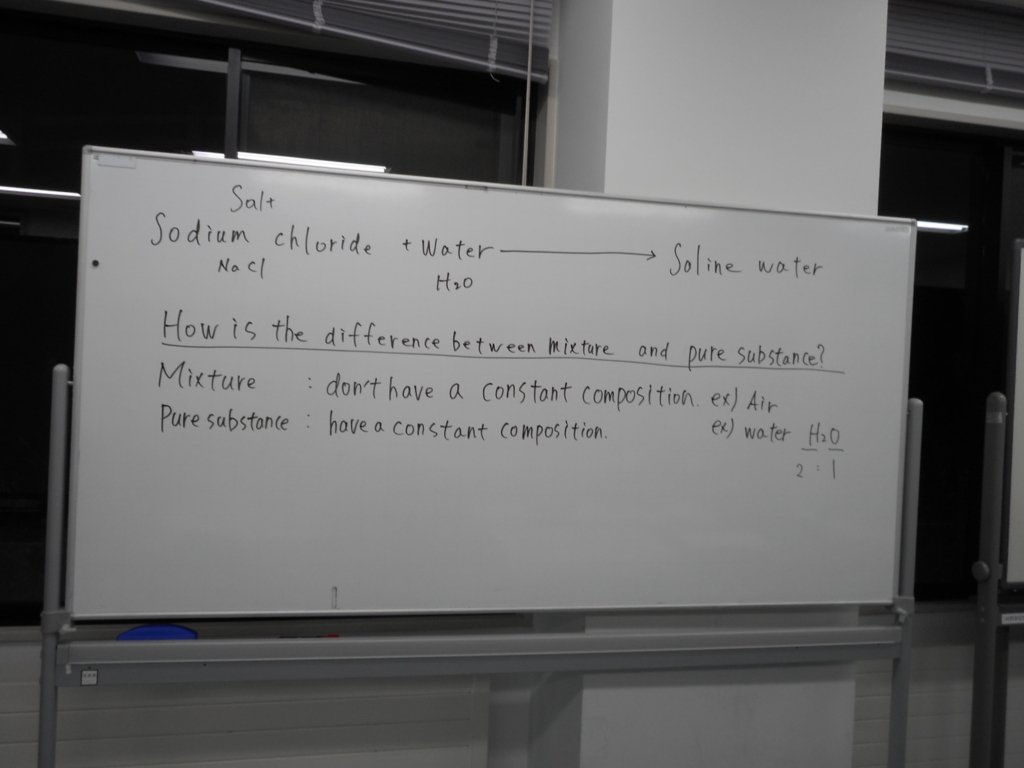 Salt
Sodium chloride + Water → Saline water
NaCl H₂O
How is the difference between mixture and pure substance?
Mixture : don't have a constant composition. ex) Air
Pure substance : have a constant composition. ex) water H₂O
2 : 1